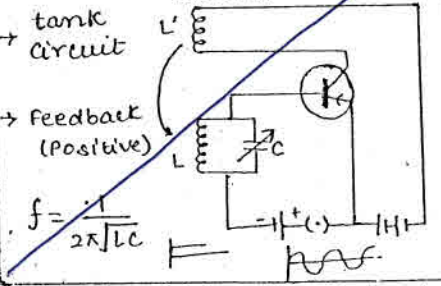 → tank
circuit
L'
→ Feedback
(Positive)
L
C
f = 1
2π√LC
- + (·)